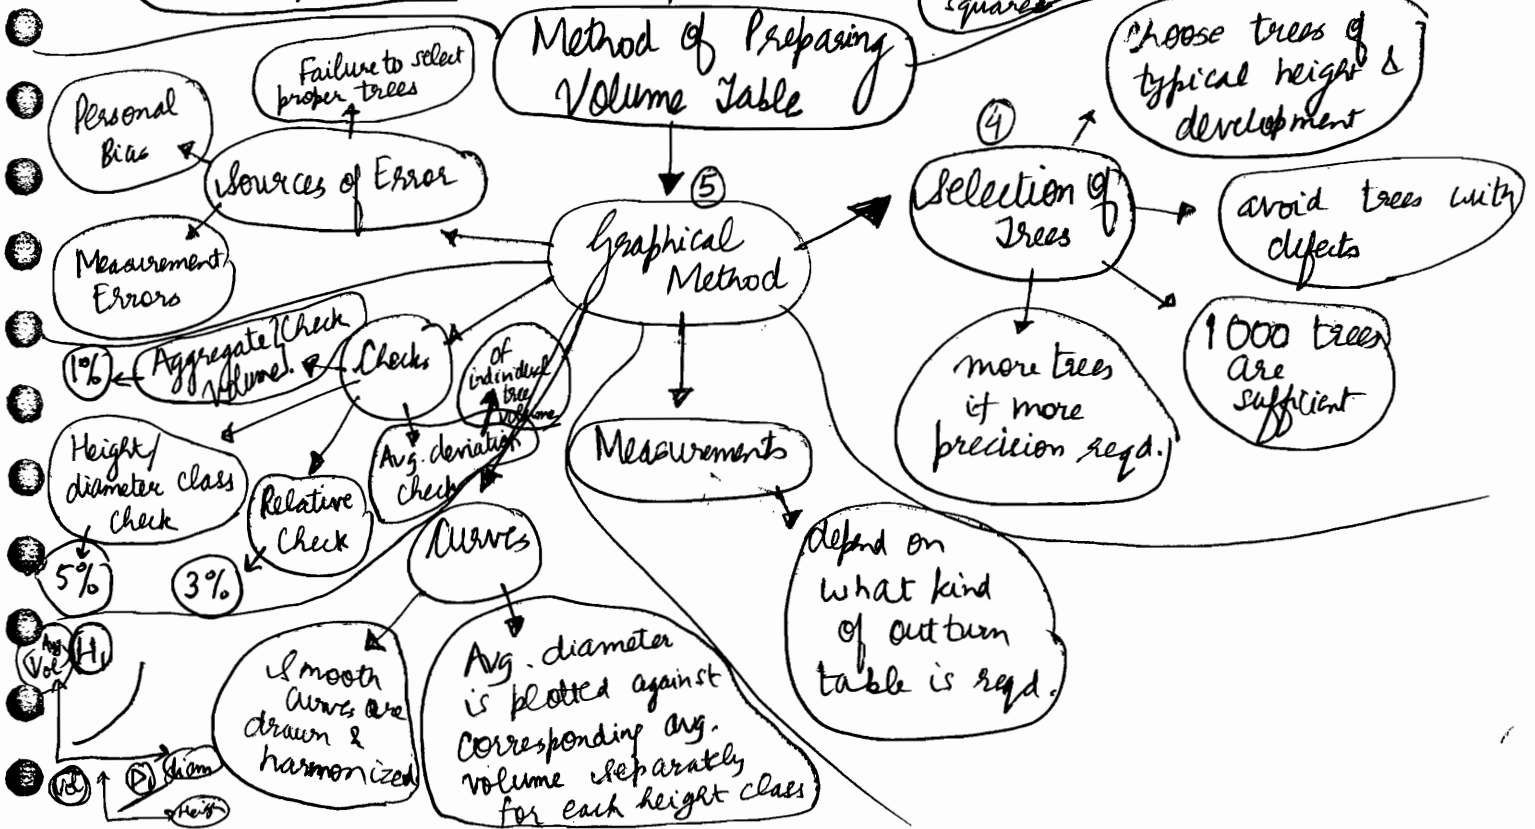 square
Method of Preparing
Volume Table
Choose trees of
typical height &
development
Failure to select
proper trees
Personal
Bias
Sources of Error
Measurement
Errors
4
Selection of
Trees
avoid trees with
defects
1000 trees
are
sufficient
more trees
if more
precision reqd.
5
Graphical
Method
Checks
Aggregate [Check
Volume].
1%
of
individual
tree
volumes
Avg. deviation
check
Height/
diameter class
check
5%
Relative
Check
3%
Measurements
depend on
what kind
of outturn
table is reqd.
Curves
Smooth
curves are
drawn &
harmonized
Avg. diameter
is plotted against
corresponding avg.
volume separately
for each height class
Avg
Vol
H1
Diam
Vol
D1
Height